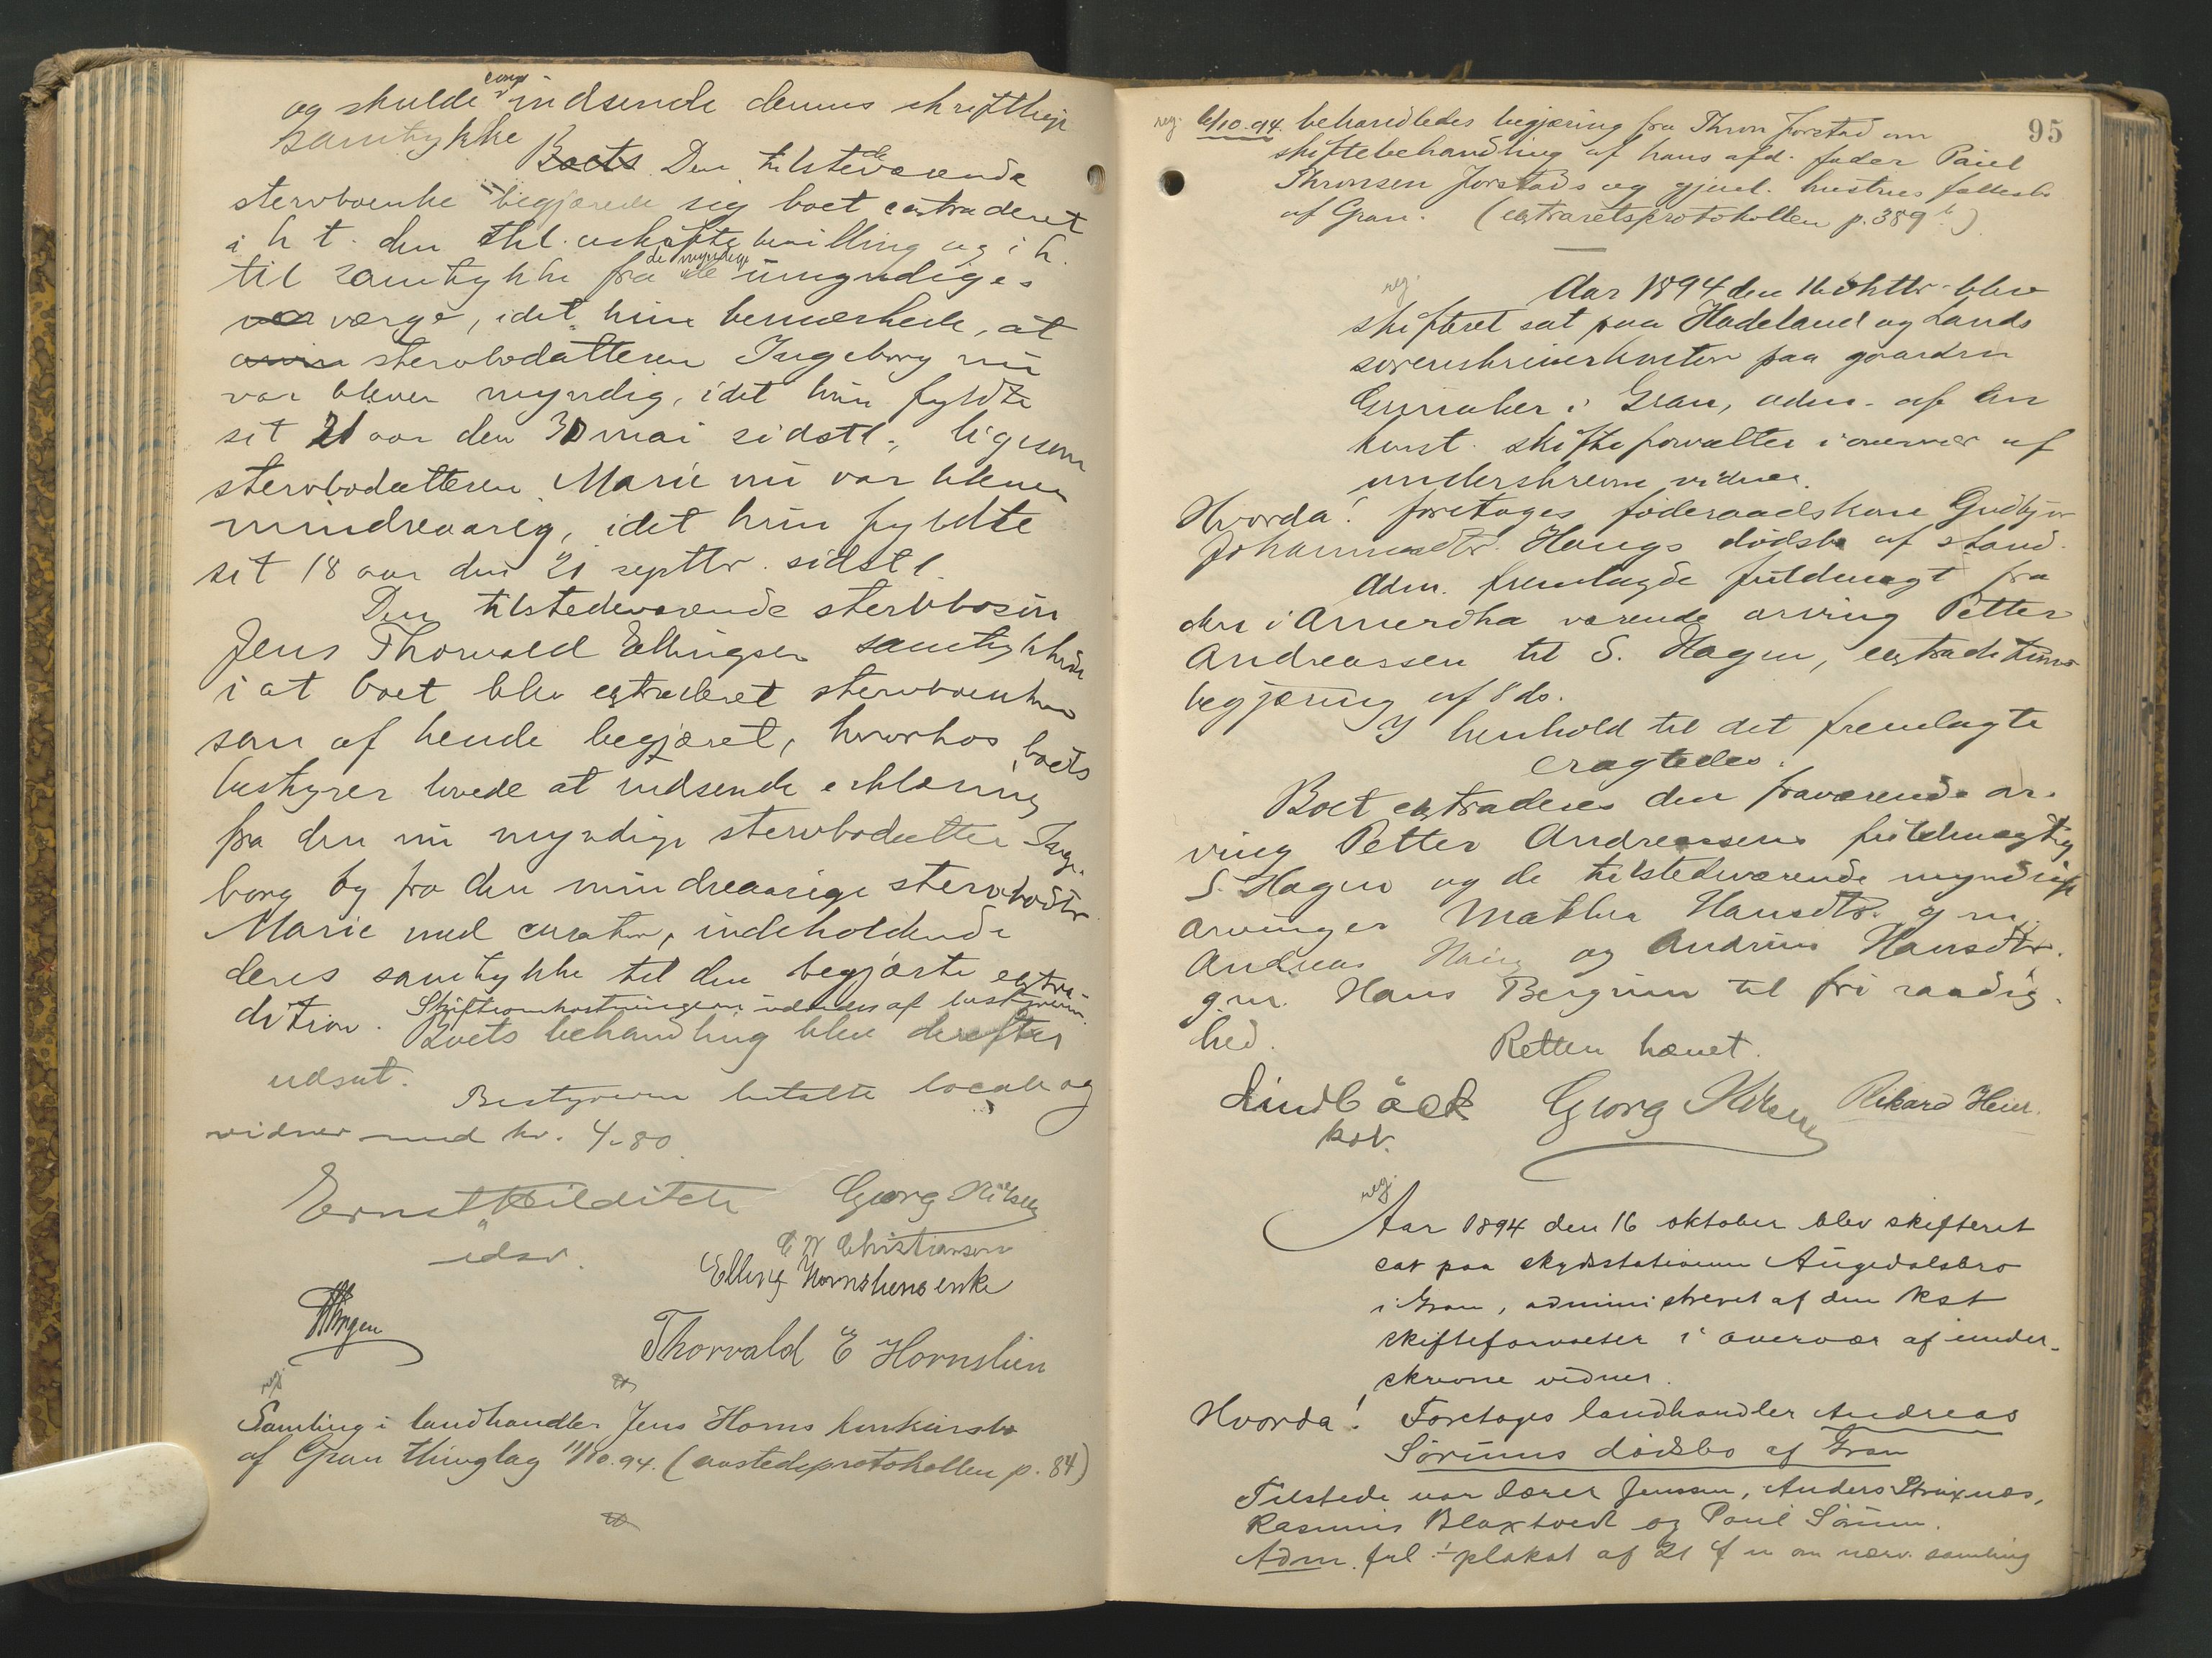 og skulde indsende dennes skriftlige
samtykke
Boets Den tilstedeværende
stervboenke begjærede sig boet extraderet
i h t. den thl. uskifte bevilling og i h.
til samtykke fra de myndige de umyndiges
værge, idet hun bemærkede, at
stervbodatteren Ingeborg nu
var bleven myndig, idet hun fyldte
sit 21 aar den 30 mai sidstl., ligesom
stervbodatteren Marie nu var bleven
mindreaarig, idet hun fyldte
sit 18 aar den 21 septbr. sidstl.
Den tilstedeværende stervbosøn
Jens Thorvald Ellingsen samtykkede
i at boet blev extraderet stervboenken
som af hende begjæret, hvorhos boets
bestyrer lovede at indsende erklæring
fra den nu myndige stervbodatter Inge-
borg og fra den mindreaarige stervbodtr
Marie med curator, indeholdende
deres samtykke til den begjærte extra-
dition. Skifteomkostningerne udredes af bestyreren.
Boets behandling blev derefter
udsat.
Bestyreren betalte locale og
vidner med kr. 4.80
Ernst
edsv.
Georg Nilsen
Christiansen
Elling Hornsliens enke
Thorvald E Hornslien
reg.
Samling i landhandler Jens Horns konkursbo
af Gran thinglag 11/10.94. (aastedsprotokollen p. 84)
95
reg. 6/10.94. behandledes begjæring fra Thron Jorstad om
skiftebehandling af hans afd. fader Paul
Thronsen Jorstads og gjenl. hustrus fællesbo
af Gran. (extraretsprotokollen p. 389 b)
reg.
Aar 1894 den 16 oktbr. blev
skifteret sat paa Hadeland og Lands
sorenskriverkontor paa gaarden
Grinaker i Gran, adm. af den
konst. skifteforvalter i overvær af
underskrevne vidner.
Hvorda! foretoges føderaadskone Gudbjør
Johannesdtr. Haugs dødsbo af stand.
Adm. fremlagde fuldmagt fra
den i Amerika værende arving Petter
Andreassen til S. Hagen, extraditions-
begjæring af 8 ds.
I henhold til det fremlagte
eragtedes:
Boet extraderes den fraværende ar-
ving Petter Andreassens fuldmægtig
S. Hagen og de tilstedeværende myndige
arvinger Mathea Hansdtr. g m.
Andreas Haug og Andrine Hansdtr.
g. m. Hans Bergum til fri raadig-
hed.
Retten hævet.
Lindbäck
kst.
Georg Nilsen
Rikard Heier.
reg.
Aar 1894 den 16 oktober blev skifteret
sat paa skydsstationen Augedalsbro
i Gran, administreret af den kst
skifteforvalter i overvær af under-
skrevne vidner.
Hvorda! Foretoges landhandler Andreas
Sørums dødsbo af Gran
Tilstede var lærer Jenssen, Anders Struxnæs,
Rasmus Blaxtvedt og Paul Sørum.
Adm. frl. plakat af 21 f m om nærv. samling